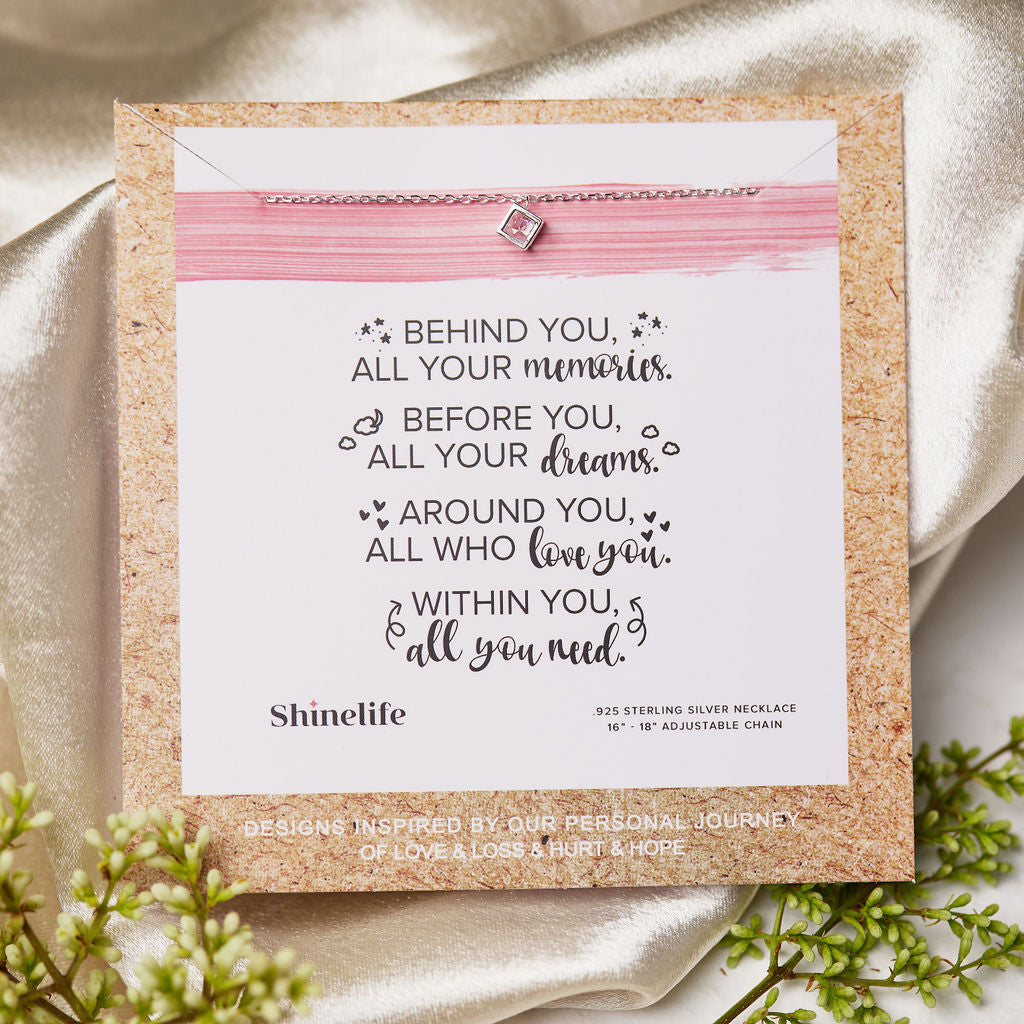 BEHIND YOU,
ALL YOUR memories.
BEFORE YOU,
ALL YOUR dreams.
AROUND YOU,
ALL WHO love you.
WITHIN YOU,
all you need.
Shinelife
.925 STERLING SILVER NECKLACE
16" - 18" ADJUSTABLE CHAIN
DESIGNS INSPIRED BY OUR PERSONAL JOURNEY
OF LOVE & LOSS & HURT & HOPE